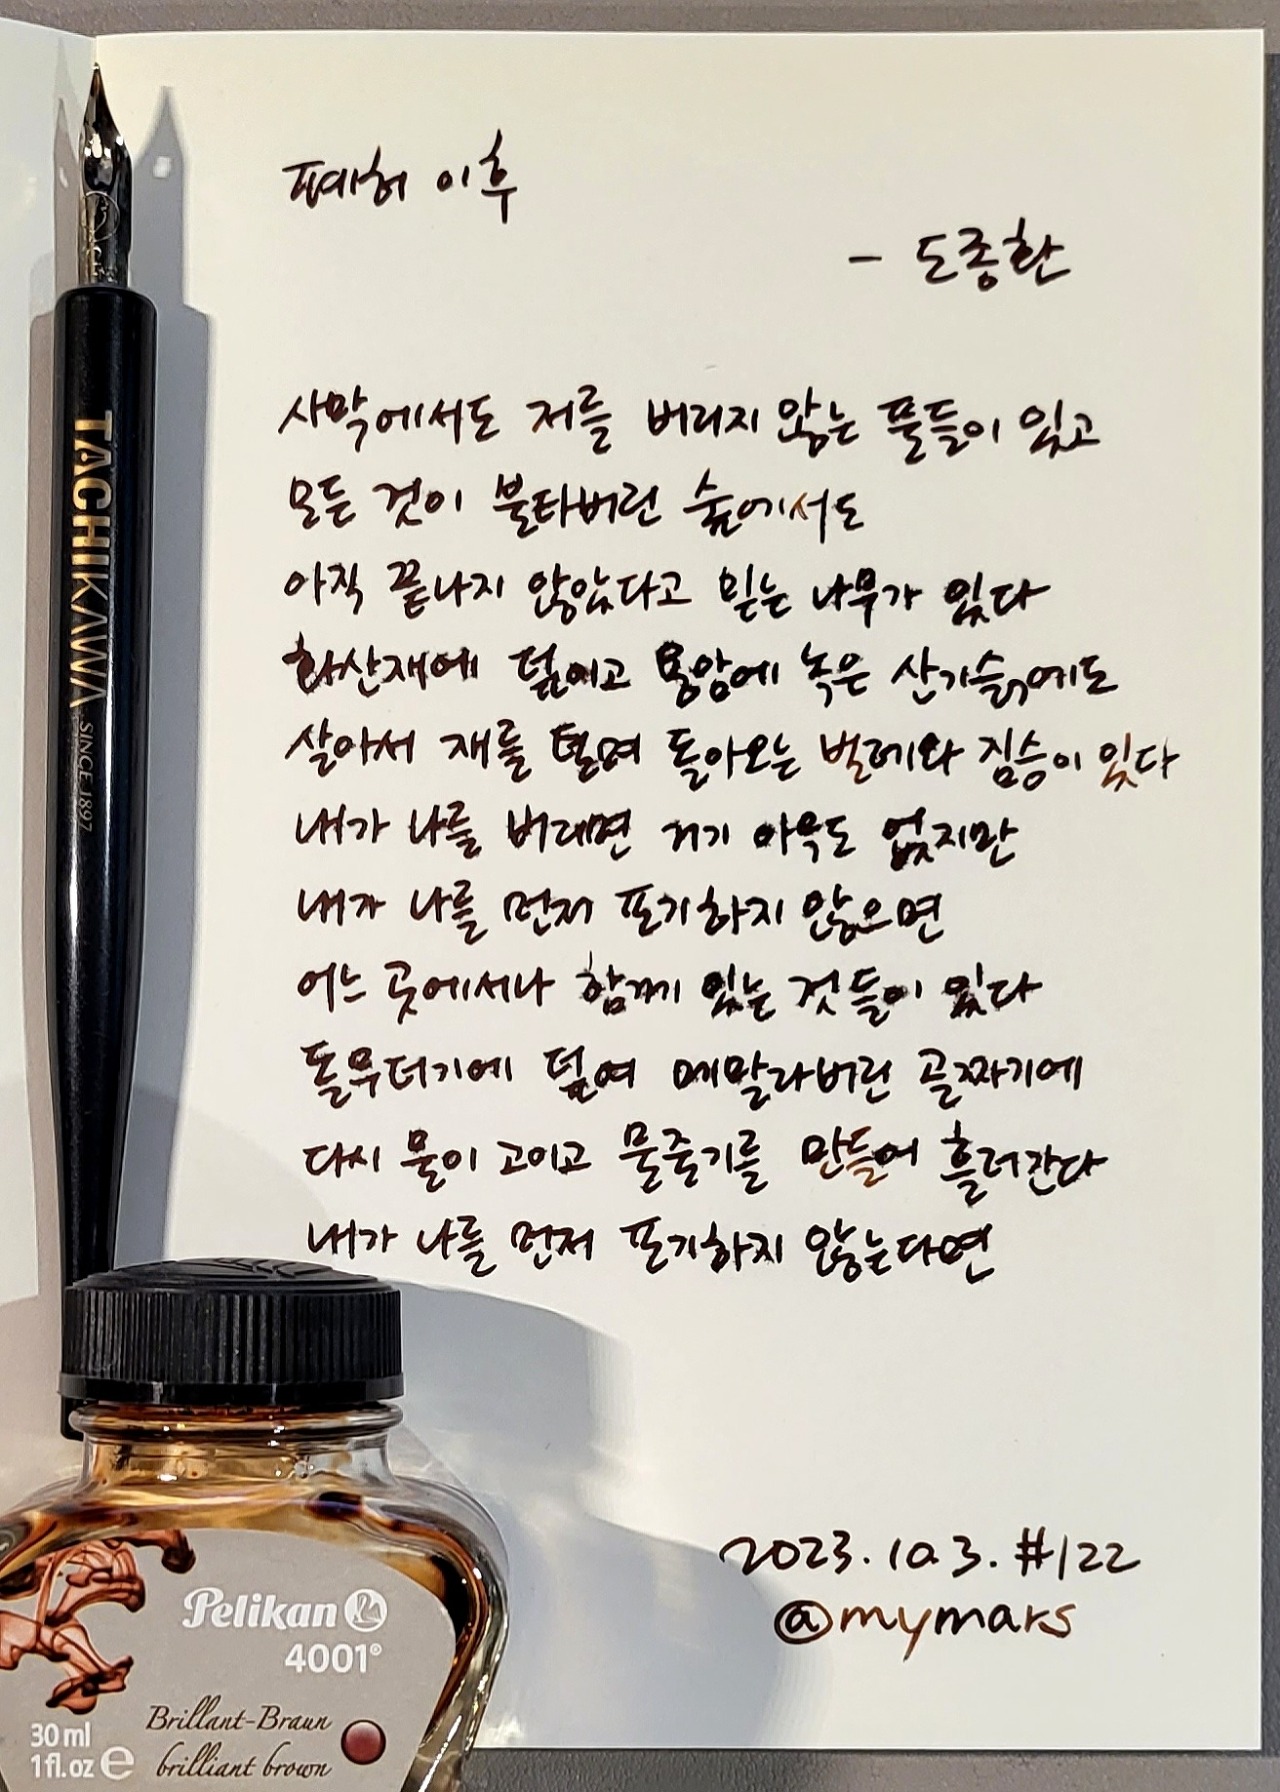 폐허 이후
- 도종환
사막에서도 저를 버리지 않는 풀들이 있고
모든 것이 불타버린 숲에서도
아직 끝나지 않았다고 믿는 나무가 있다
화산재에 덮이고 용암에 녹은 산기슭에도
살아서 재를 털며 돌아오는 벌레와 짐승이 있다
내가 나를 버리면 거기 아무도 없지만
내가 나를 먼저 포기하지 않으면
어느 곳에서나 함께 있는 것들이 있다
돌무더기에 덮여 메말라버린 골짜기에
다시 물이 고이고 물줄기를 만들어 흘러간다
내가 나를 먼저 포기하지 않는다면
2023. 10. 3. #122
@mymars
TACHIKAWA SINCE 1897
Pelikan
4001®
Brillant-Braun
brilliant brown
30 ml
1 fl.oz e